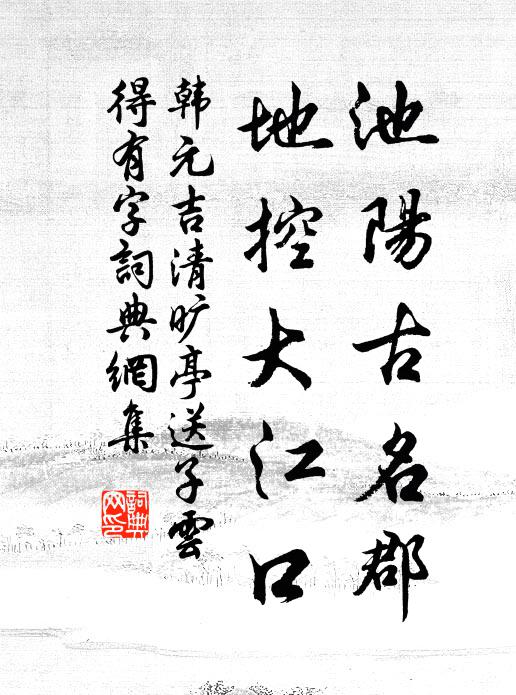 池陽古名郡
地控大江口
韩元吉清旷亭送子雲
得有字詞典網集
詞典网印